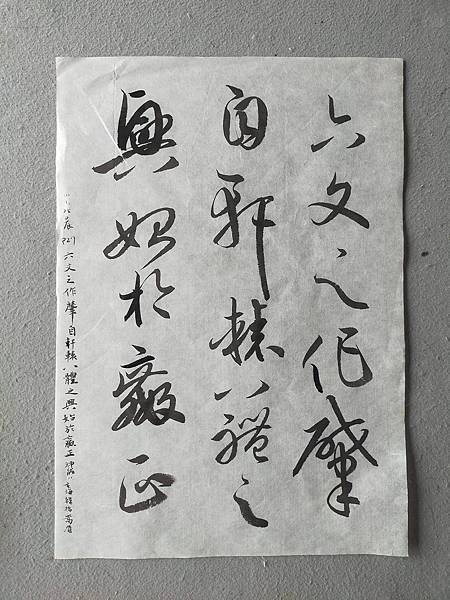 六文之作肇
自軒轅八體之
興始於嬴正
六文之作肇自軒轅八體之興始於嬴正